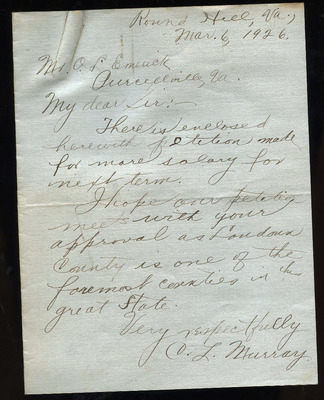 Round Hill, Va.,
Mar. 6, 1926.
Mr. O. L. Emerick
Purcellville, Va.
My dear Sir:-
There is enclosed
herewith petition made
for more salary for
next term.
I hope our petition
meets with your
approval as Loudoun
County is one of the
foremost counties in this
great State.
Very respectfully
C. L. Murray